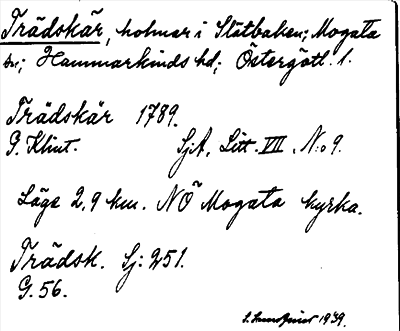 Trädskär, holmar i Slätbaken; Mogata
sn; Hammarkinds hd; Östergötl. l.
Trädskär 1789.
G. Klint. SjA, Litt. VII, No 9.
Läge 2,9 km. NÖ Mogata kyrka.
Trädsk. Sj: 251.
G. 56.
1939.